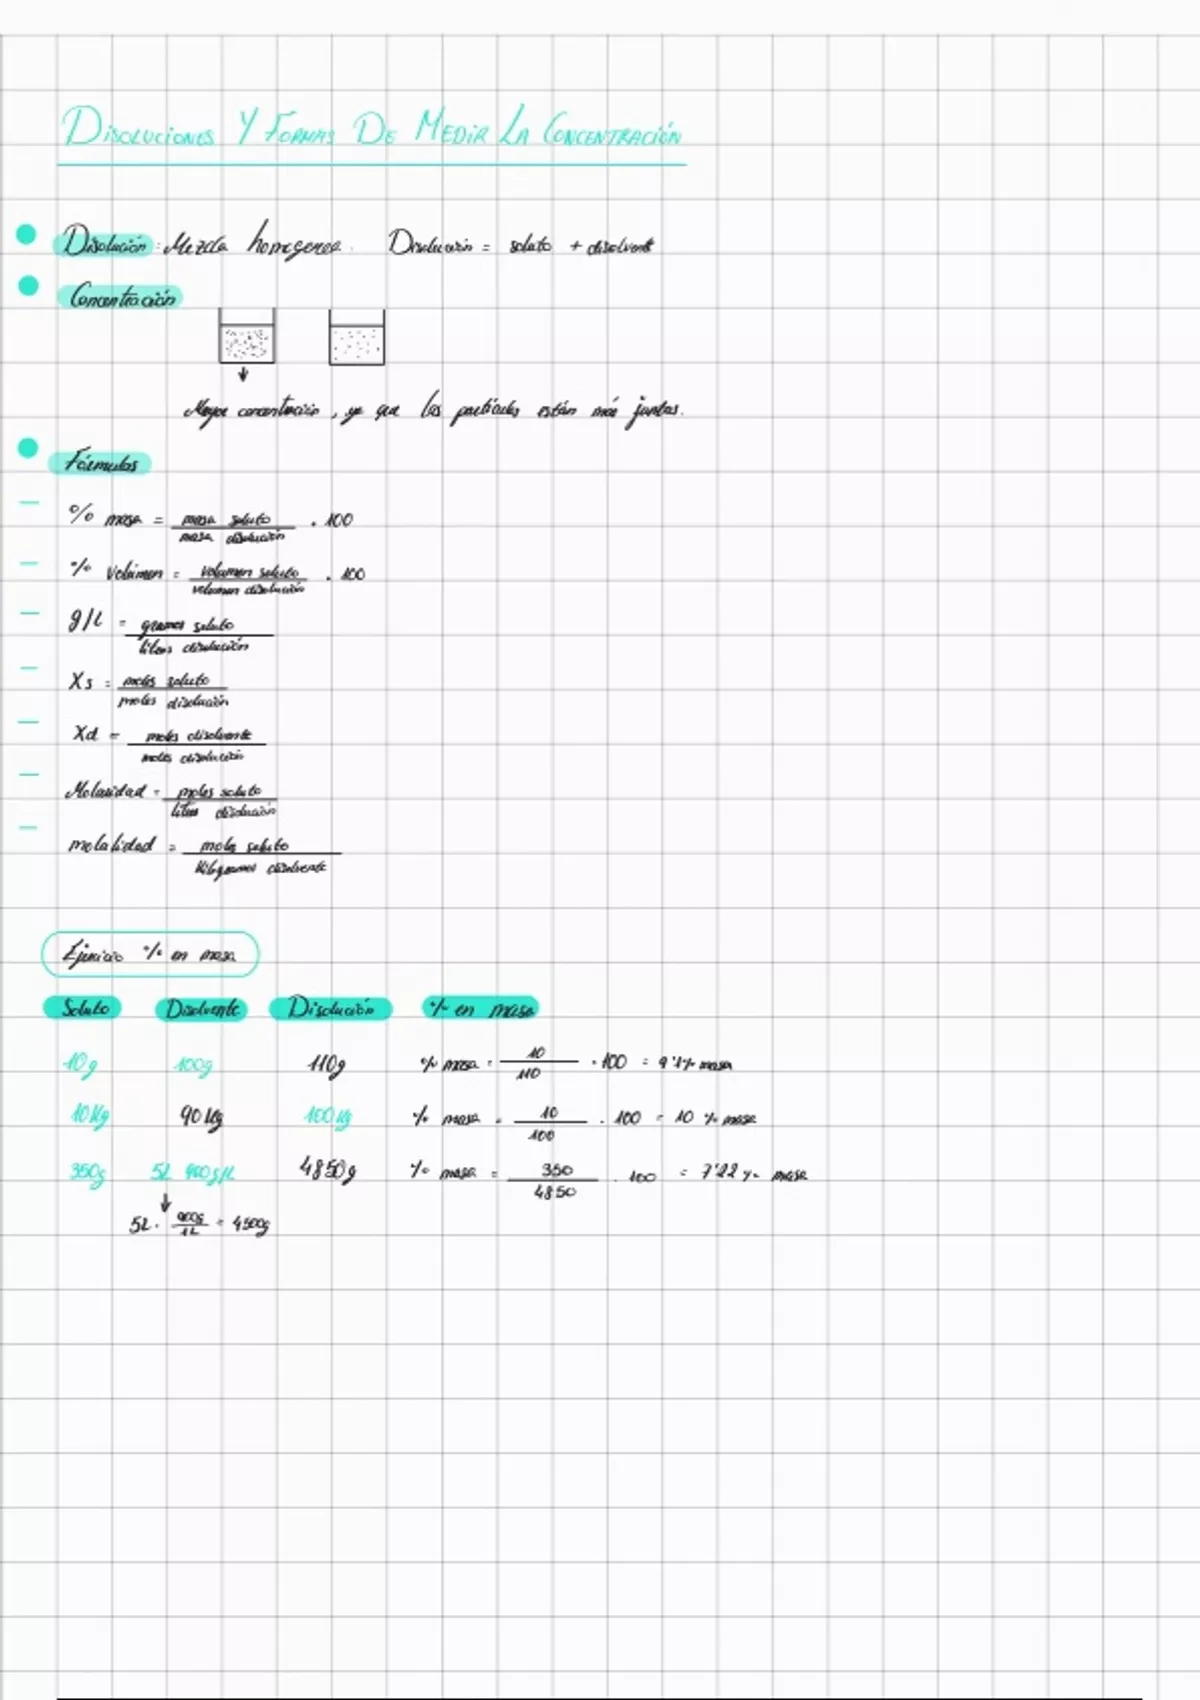 DISOLUCIONES Y FORMAS DE MEDIR LA CONCENTRACIÓN
Disolución: Mezcla homogenea. Disolución = soluto + disolvente
Concentración
Mayor concentración, ya que las partículas están más juntas.
Fórmulas
% masa = masa soluto / masa disolución · 100
% Volúmen = volumen soluto / volumen disolución · 100
g/L = gramos soluto / litros disolución
Xs = moles soluto / moles disolución
Xd = moles disolvente / moles disolución
Molaridad = moles soluto / litros disolución
molalidad = moles soluto / Kilogramos disolvente
Ejercicio % en masa
Soluto Disolvente Disolución % en masa
10g 100g 110g % masa = 10 / 110 · 100 = 9'1% masa
10Kg 90Kg 100Kg % masa = 10 / 100 · 100 = 10 % masa
350g 5L 900g/L 4850g % masa = 350 / 4850 · 100 = 7'22 % masa
5L · 900g / 1L = 4500g